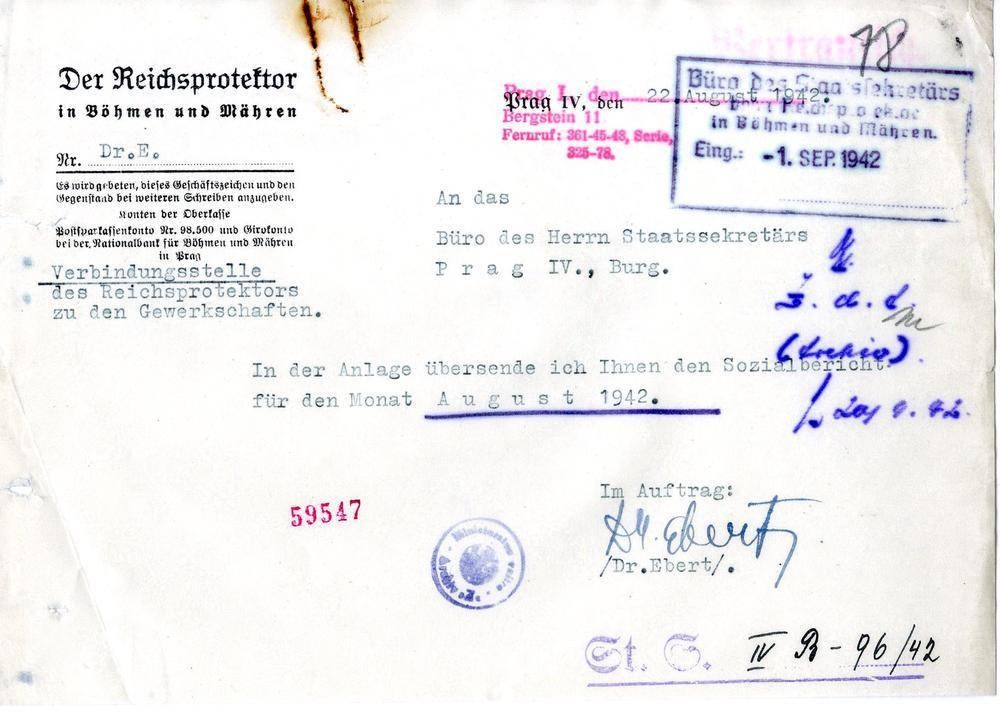 78
Der Reichsprotektor
in Böhmen und Mähren
Nr. Dr.E.
Es wird gebeten, dieses Geschäftszeichen und den
Gegenstand bei weiteren Schreiben anzugeben.
Konten der Oberkasse
Postsparkassenkonto Nr. 98.500 und Girokonto
bei der Nationalbank für Böhmen und Mähren
in Prag
Verbindungsstelle
des Reichsprotektors
zu den Gewerkschaften.
Vertraulich
Prag IV, den 22. August 1942.
Prag I, den
Bergstein 11
Fernruf: 361-45-48, Serie,
325-78.
Büro des Staatssekretärs
in Böhmen und Mähren.
Eing.: -1. SEP. 1942
An das
Büro des Herrn Staatssekretärs
Prag IV., Burg.
Z. d. A.
(Archiv)
In der Anlage übersende ich Ihnen den Sozialbericht
für den Monat August 1942.
Im Auftrag:
Dr. Ebert
/Dr.Ebert/.
59547
St. S. IV B - 96/42